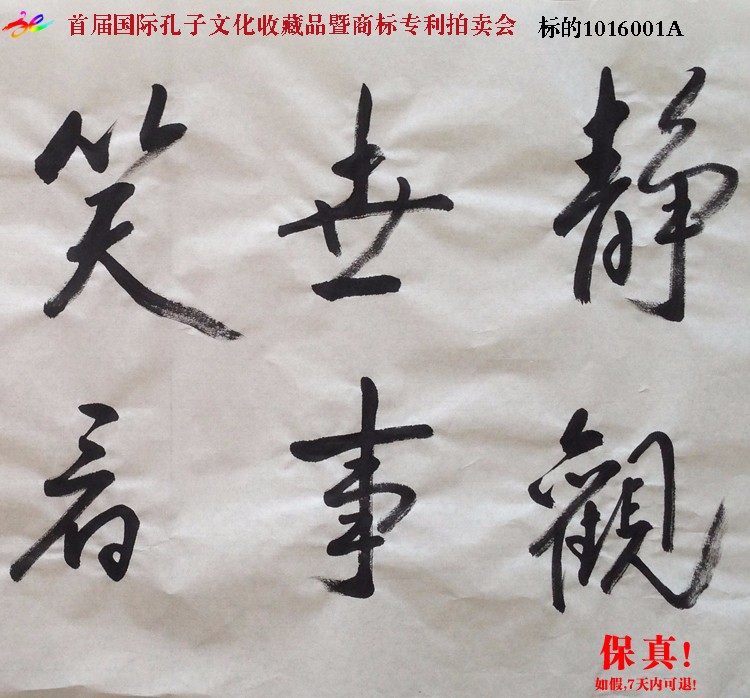 首届国际孔子文化收藏品暨商标专利拍卖会 标的1016001A
静觀
世事
笑看
保真!
如假,7天内可退!